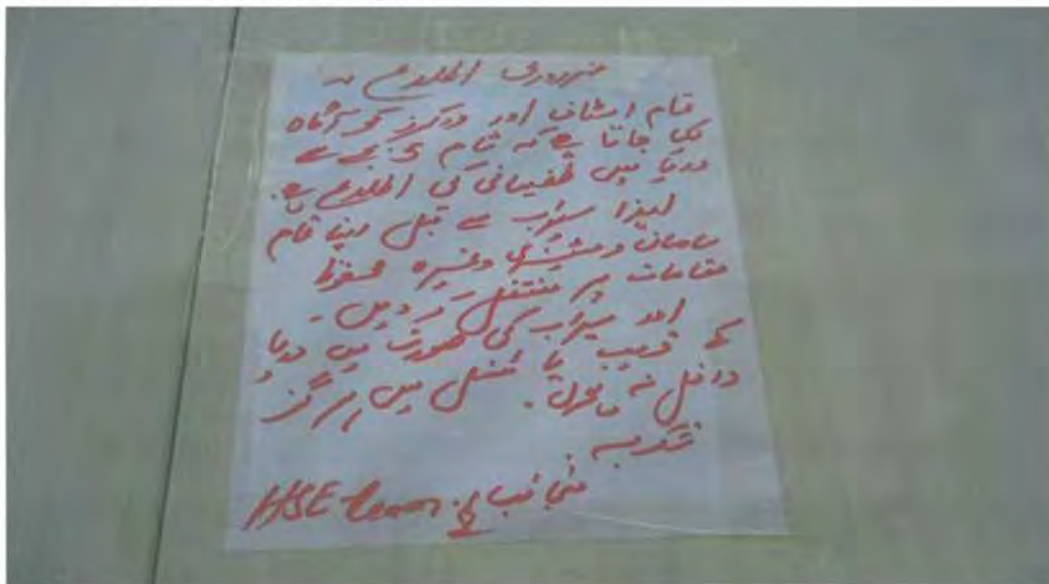 ضروری اطلاع
تمام اسٹاف اور ورکرز کو آگاہ
کیا جاتا ہے کہ شام 5 بجے سے
دریا میں طغیانی کی اطلاع ہے۔
لہذا سیلاب سے قبل اپنا تمام
سامان و مشینری وغیرہ محفوظ
مقامات پر منتقل کر دیں۔
اور سیلاب کی صورت میں دریا
کے قریب یا ٹنل میں ہرگز
داخل نہ ہوں۔
شکریہ
منجانب HSE Team